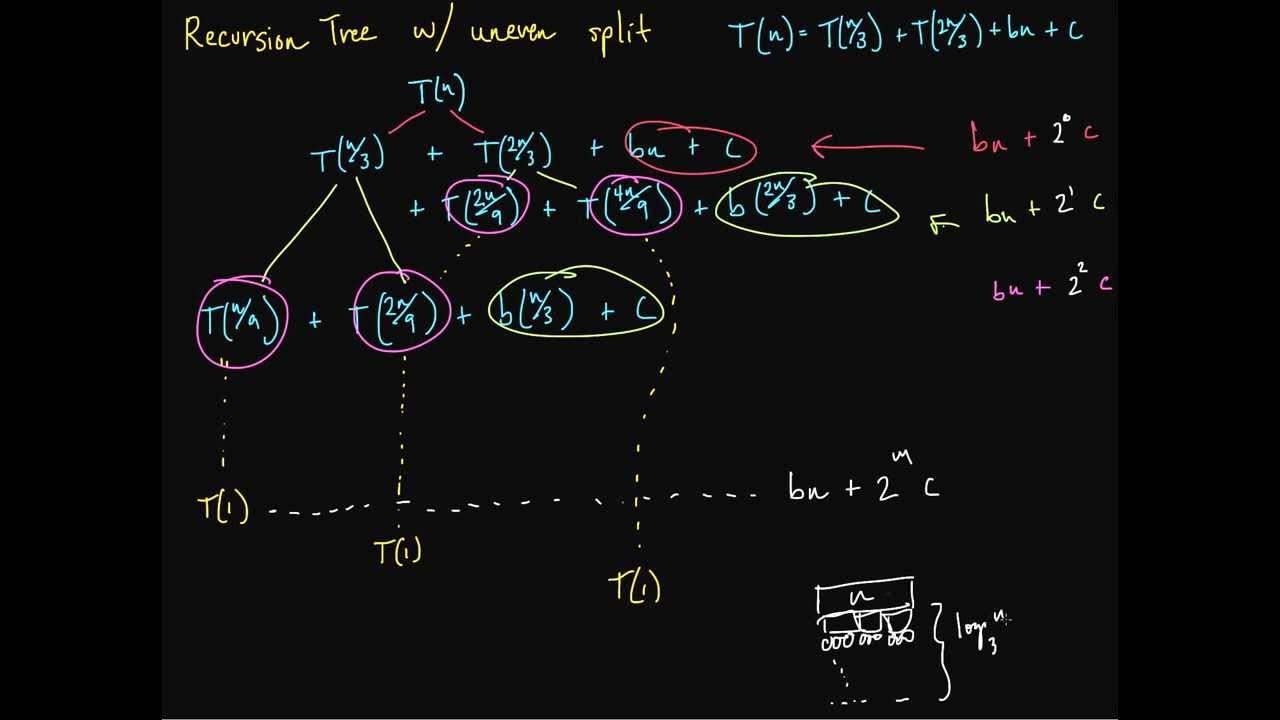 Recursion Tree w/ uneven split
T(n) = T(n/3) + T(2n/3) + bn + c
T(n)
T(n/3) + T(2n/3) + bn + c
bn + 2^0 c
+ T(2n/9) + T(4n/9) + b(2n/3) + c
bn + 2^1 c
bn + 2^2 c
T(n/9) + T(2n/9) + b(n/3) + c
bn + 2^m c
T(1)
T(1)
T(1)
n
log_3 n